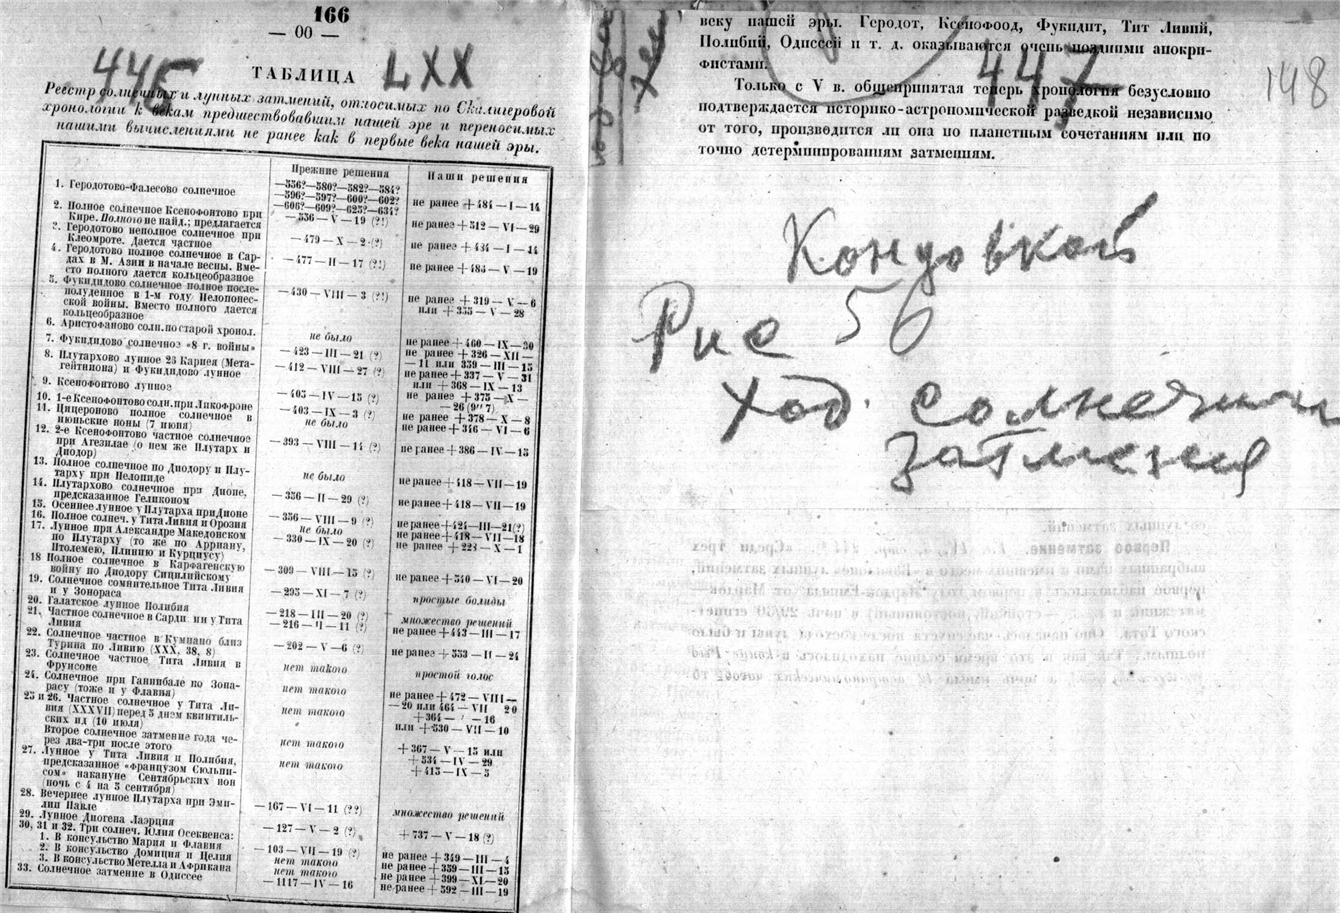 166
— 00 —
446
ТАБЛИЦА LXX
Реестр солнечных и лунных затмений, относимых по Скалигеровой
хронологии к векам предшествовавшим нашей эре и переносимых
нашими вычислениями не ранее как в первые века нашей эры.
Прежние решения
Наши решения
1. Геродотово-Фалесово солнечное
—556?—580?—582?—584?
—596?—597?—600?—602?
—606?—609?—625?—634?
не ранее + 484 — I — 14
2. Полное солнечное Ксенофонтово при
Кире. Полного не найд.; предлагается
— 556 — V — 19 (?!)
не ранее + 512 — VI — 29
3. Геродотово неполное солнечное при
Клеомроте. Дается частное
— 479 — X — 2 (?)
не ранее + 484 — I — 14
4. Геродотово полное солнечное в Сар-
дах в М. Азии в начале весны. Вме-
сто полного дается кольцеобразное
— 477 — II — 17 (?!)
не ранее + 483 — V — 19
5. Фукидидово солнечное полное после-
полуденное в 1-м году Пелопонес-
ской войны. Вместо полного дается
кольцеобразное
— 430 — VIII — 3 (?!)
не ранее + 319 — V — 6
или + 355 — V — 28
6. Аристофаново солн. по старой хронол.
не было
не ранее + 460 — IX — 30
7. Фукидидово солнечное «8 г. войны»
— 423 — III — 21 (?)
не ранее + 326 — XII —
— 11 или 359 — III — 15
8. Плутархово лунное 23 Карнея (Мета-
гейтниона) и Фукидидово лунное
— 412 — VIII — 27 (?)
не ранее + 337 — V — 31
или + 368 — IX — 13
9. Ксенофонтово лунное
— 405 — IV — 15 (?)
не ранее + 375 — X —
— 26 (9ч 7)
10. 1-е Ксенофонтово солн. при Ликофроне
— 403 — IX — 3 (?)
не ранее + 378 — X — 8
11. Цицероново полное солнечное в
июньские ноны (7 июня)
не было
не ранее + 346 — VI — 6
12. 2-е Ксенофонтово частное солнечное
при Агезилае (о нем же Плутарх и
Диодор)
— 393 — VIII — 14 (?)
не ранее + 386 — IV — 15
13. Полное солнечное по Диодору и Плу-
тарху при Пелопиде
не было
не ранее + 418 — VII — 19
14. Плутархово солнечное при Дионе,
предсказанное Геликоном
— 356 — II — 29 (?)
не ранее + 418 — VII — 19
15. Осеннее лунное у Плутарха при Дионе
— 356 — VIII — 9 (?)
не ранее + 424 — III — 21 (?)
16. Полное солнеч. у Тита Ливия и Орозия
не было
не ранее + 418 — VII — 18
17. Лунное при Александре Македонском
по Плутарху (то же по Арриану,
Птолемею, Плинию и Курциусу)
— 330 — IX — 20 (?)
не ранее + 224 — X — 1
18 Полное солнечное в Карфагенскую
войну по Диодору Сицилийскому
— 309 — VIII — 15 (?)
не ранее + 540 — VI — 20
19. Солнечное сомнительное Тита Ливия
и у Зонораса
— 295 — XI — 7 (?)
простые болиды
20. Галатское лунное Полибия
— 218 — III — 20 (?)
множество решений
21. Частное солнечное в Сарди нии у Тита
Ливия
— 216 — II — 11 (?)
не ранее + 443 — III — 17
22. Солнечное частное в Кумпано близ
Турина по Ливию (XXX, 38, 8)
— 202 — V — 6 (?)
не ранее + 533 — II — 24
23. Солнечное частное Тита Ливия в
Фрунсоне
нет такого
простой голос
24. Солнечное при Ганнибале ко Зона-
расу (тоже и у Флавия)
нет такого
не ранее + 472 — VIII —
— 20 или 464 — VII 20
25 и 26. Частное солнечное у Тита Ли-
вия (XXXVII) перед 5 днем квинтиль-
ских ид (10 июля)
нет такого
+ 364 — — 16
или + 530 — VII — 10
Второе солнечное затмение года че-
рез два-три после этого
нет такого
+ 367 — V — 15 или
+ 534 — IV — 29
27. Лунное у Тита Ливия и Полибия,
предсказанное «Французом Сюльпи-
сом» накануне Сентябрьских нон
(ночь с 4 на 5 сентября)
нет такого
+ 415 — IX — 5
28. Вечернее лунное Плутарха при Эми-
лии Павле
— 167 — VI — 11 (??)
множество решений
29. Лунное Диогена Лаэрция
— 127 — V — 2 (?)
+ 737 — V — 18 (?)
30, 31 и 32. Три солнеч. Юлия Осеквенса:
1. В консульство Мария и Флавия
— 103 — VII — 19 (?)
не ранее + 349 — III — 4
2. В консульство Домиция и Целия
нет такого
не ранее + 359 — III — 15
3. В консульство Метелла и Африкана
нет такого
не ранее + 399 — XI — 20
33. Солнечное затмение в Одиссее
— 1117 — IV — 16
не ранее + 592 — III — 19
веку нашей эры. Геродот, Ксенофоод, Фукидит, Тит Ливий,
Полибий, Одиссей и т. д. оказываются очень поздними апокри-
фистами.
447
148
Только с V в. общепринятая теперь хронология безусловно
подтверждается историко-астрономической разведкой независимо
от того, производится ли она по планетным сочетаниям или по
точно детерминированным затмениям.
Кондовкой
Рис 56
Ход солнечнаго
затмения